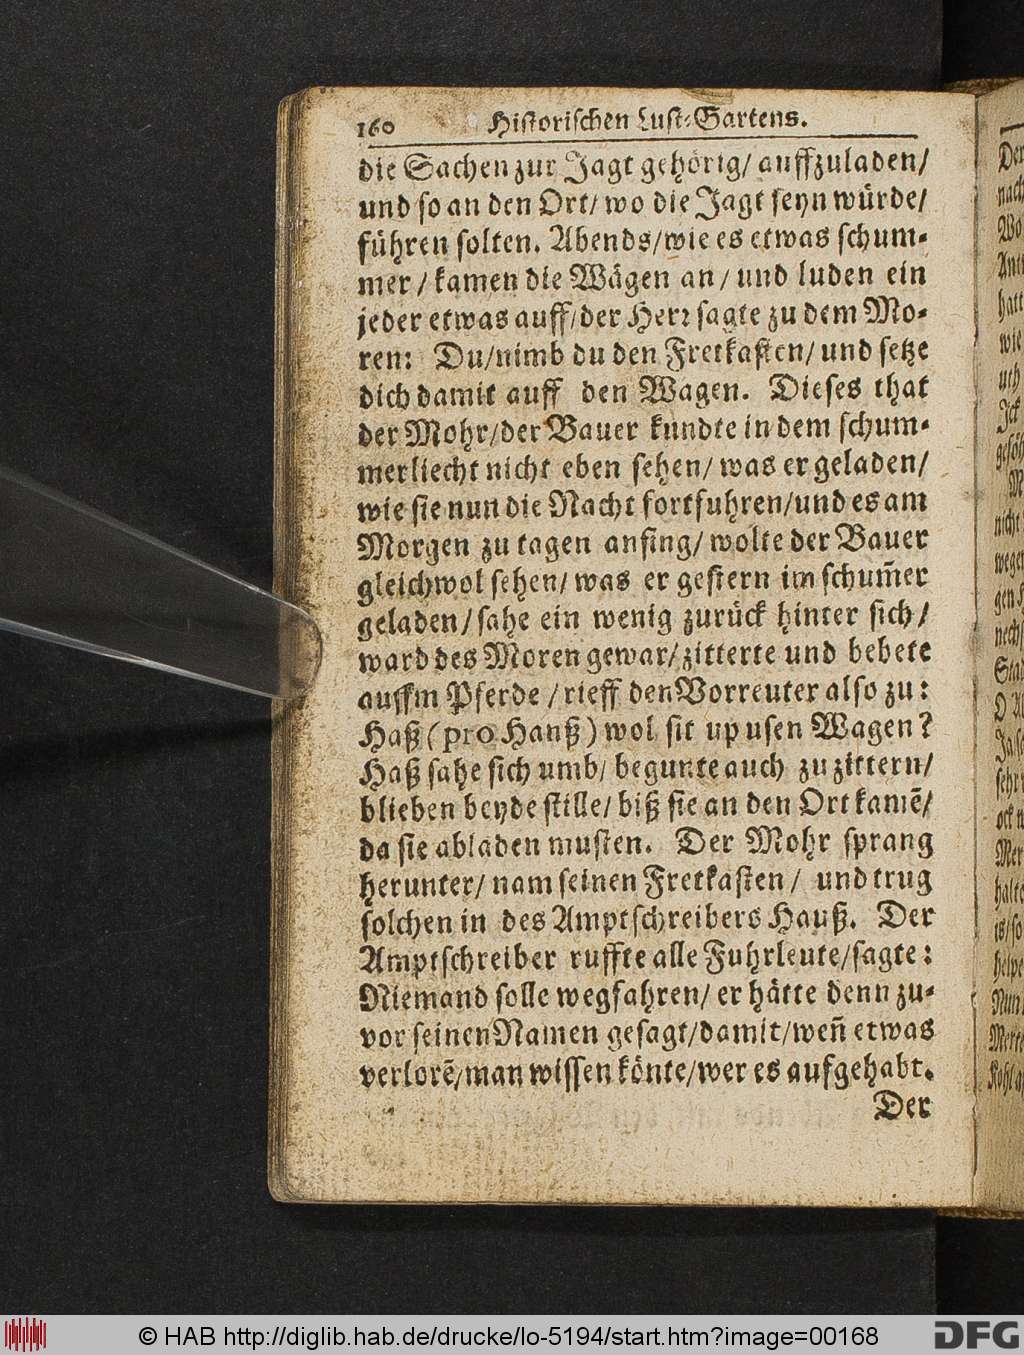 160 Historischen Lust-Gartens.
die Sachen zur Jagt gehörig/ auffzuladen/
und so an den Ort/ wo die Jagt seyn würde/
führen solten. Abends/wie es etwas schum-
mer/ kamen die Wägen an/ und luden ein
jeder etwas auff/der Herꝛ sagte zu dem Mo-
ren: Du/nimb du den Fretkasten/ und setze
dich damit auff den Wagen. Dieses that
der Mohr/der Bauer kundte in dem schum-
merliecht nicht eben sehen/ was er geladen/
wie sie nun die Nacht fortfuhren/und es am
Morgen zu tagen anfing/ wolte der Bauer
gleichwol sehen/ was er gestern im schum̃er
geladen/ sahe ein wenig zurück hinter sich/
ward des Moren gewar/zitterte und bebete
auffm Pferde/rieff den Vorreuter also zu:
Haß (pro Hanß) wol sit up usen Wagen?
Haß sahe sich umb/ begunte auch zu zittern/
blieben beyde stille/ biß sie an den Ort kamẽ/
da sie abladen musten. Der Mohr sprang
herunter/ nam seinen Fretkasten/ und trug
solchen in des Amptschreibers Hauß. Der
Amptschreiber ruffte alle Fuhrleute/sagte:
Niemand solle wegfahren/ er hätte denn zu-
vor seinen Namen gesagt/damit/wen̄ etwas
verlorẽ/man wissen könte/wer es aufgehabt.
Der
© HAB http://diglib.hab.de/drucke/lo-5194/start.htm?image=00168
DFG